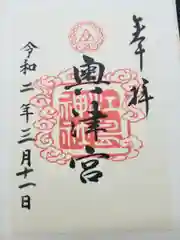 奉拝
奥津宮
令和二年三月十一日